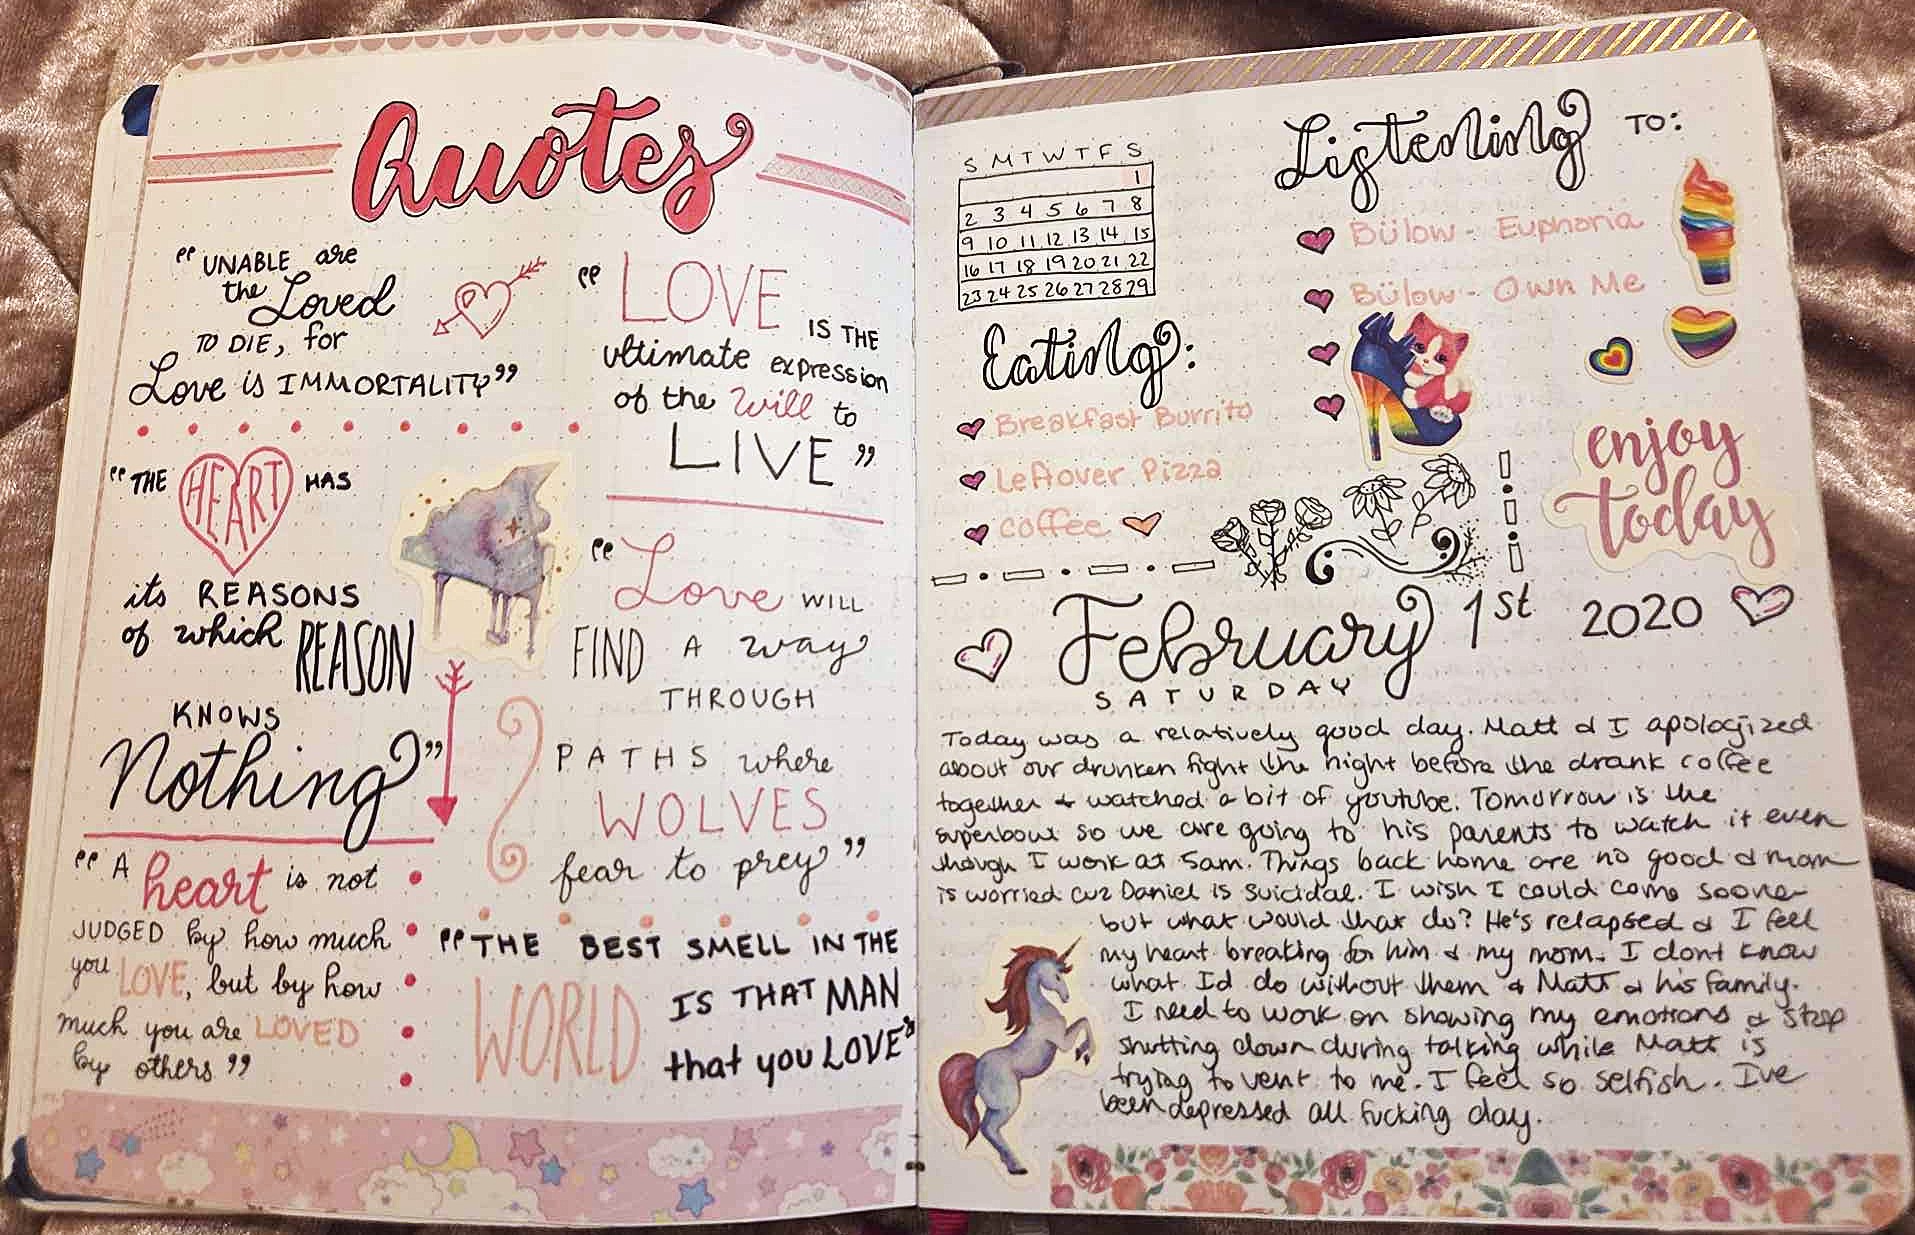 Quotes
"UNABLE are
the Loved
TO DIE, for
Love is IMMORTALITY"
"THE HEART HAS
its REASONS
of which REASON
KNOWS
Nothing"
"A heart is not
JUDGED by how much
you LOVE, but by how
much you are LOVED
by others"
"LOVE
IS THE
ultimate expression
of the Will to
LIVE"
"Love WILL
FIND A way
THROUGH
PATHS where
WOLVES
fear to prey"
"THE BEST SMELL IN THE
WORLD IS THAT MAN
that you LOVE"
S M T W T F S
1
2 3 4 5 6 7 8
9 10 11 12 13 14 15
16 17 18 19 20 21 22
23 24 25 26 27 28 29
Listening TO:
Bülow - Euphoria
Bülow - Own Me
Eating:
Breakfast Burrito
Leftover Pizza
Coffee
enjoy
today
February 1st 2020
SATURDAY
Today was a relatively good day. Matt & I apologized
about our drunken fight the night before the drank coffee
together & watched a bit of youtube. Tomorrow is the
superbowl so we are going to his parents to watch it even
though I work at 5am. Things back home are no good & mom
is worried cuz Daniel is suicidal. I wish I could come sooner
but what would that do? He's relapsed & I feel
my heart breaking for him & my mom. I dont know
what I'd do without them & Matt & his family.
I need to work on showing my emotions & stop
shutting down during talking while Matt is
trying to vent to me. I feel so selfish. I've
been depressed all fucking day.